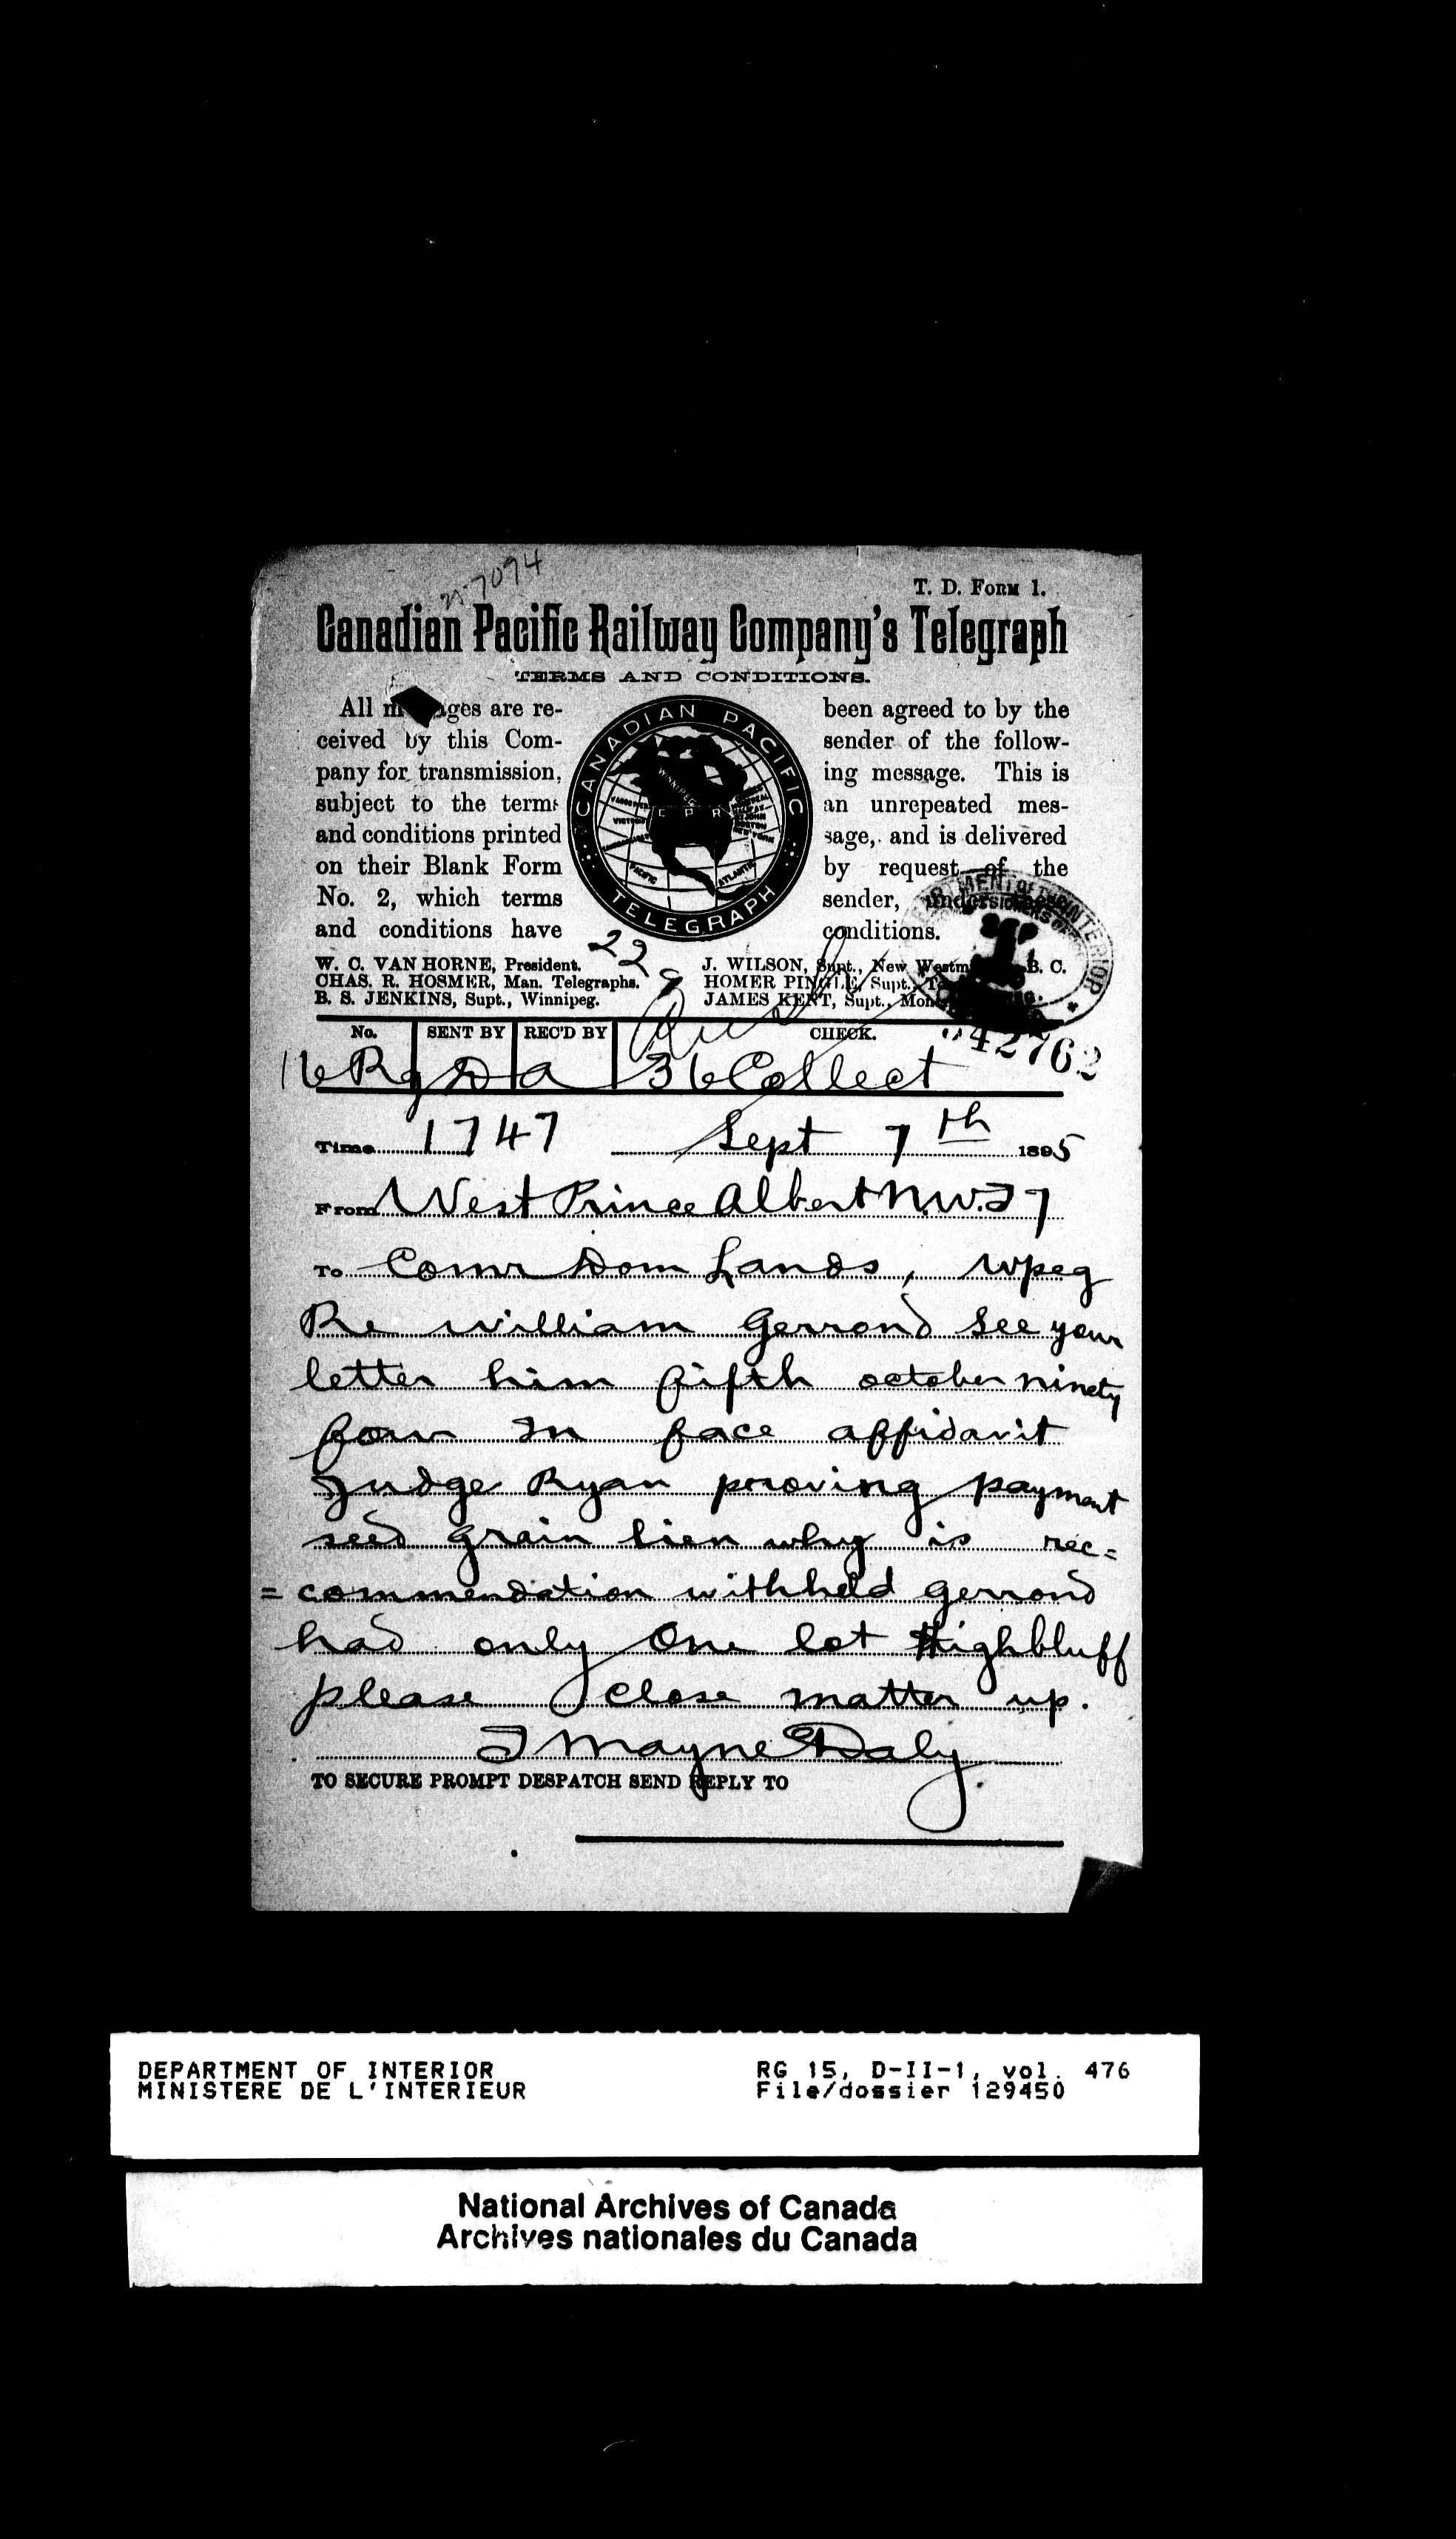 7094
T. D. FORM 1.
Canadian Pacific Railway Company's Telegraph
TERMS AND CONDITIONS.
All m ages are re-
ceived by this Com-
pany for transmission,
subject to the terms
and conditions printed
on their Blank Form
No. 2, which terms
and conditions have
CANADIAN PACIFIC
WINNIPEG
C P R
PACIFIC
ATLANTIC
TELEGRAPH
been agreed to by the
sender of the follow-
ing message. This is
an unrepeated mes-
sage, and is delivered
by request of the
sender, under these
conditions.
W. C. VAN HORNE, President.
CHAS. R. HOSMER, Man. Telegraphs.
B. S. JENKINS, Supt., Winnipeg.
22
J. WILSON, Supt., New Westm B. C.
HOMER PINGLE, Supt.,
JAMES KENT, Supt., Mon
INTERIOR
No. SENT BY REC'D BY CHECK.
42762
16 Rg D a 36 Collect
Time 1747 Sept 7th 1895
From West Prince Albert N.W.T 7
To Comr Dom Lands, Wpeg
Re William Gerrond see your
letter him fifth october ninety
four In face affidavit
Judge Ryan proving payment
seed grain lien why is rec=
=commendation withheld gerrond
had only One lot Highbluff
please close matter up.
T Mayne Daly
TO SECURE PROMPT DESPATCH SEND REPLY TO
DEPARTMENT OF INTERIOR
MINISTERE DE L'INTERIEUR
RG 15, D-II-1, vol. 476
File/dossier 129450
National Archives of Canada
Archives nationales du Canada